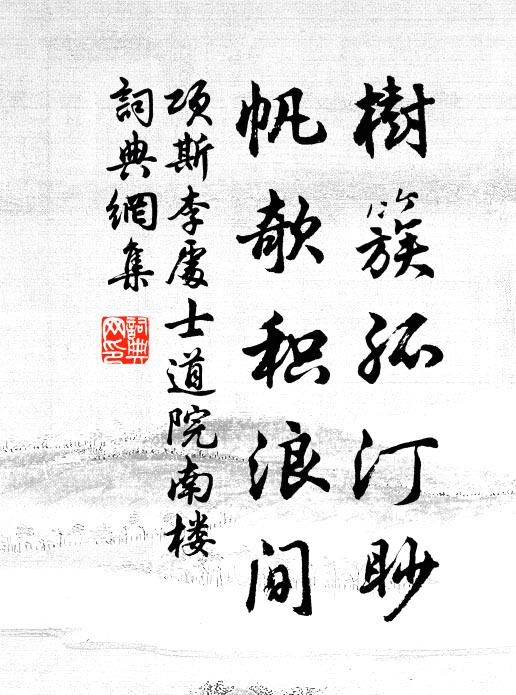 樹簇孤汀眇
帆欹积浪间
项斯李處士道院南楼
詞典網集
詞典网印